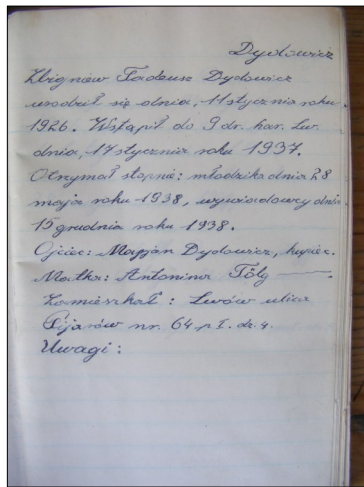 Dydowicz
Zbigniew Tadeusz Dydowicz
urodził się dnia, 11 stycznia roku
1926. Wstąpił do 9 dr. har. Lw.
dnia, 17 stycznia roku 1937.
Otrzymał stopnie: młodzika dnia 28
maja roku 1938, wywiadowcy dnia
15 grudnia roku 1938.
Ojciec: Marjan Dydowicz, kupiec.
Matka: Antonina Tölg —.
Zamieszkał: Lwów ulica
Pijarów nr. 64 p I. dz. 4.
Uwagi: